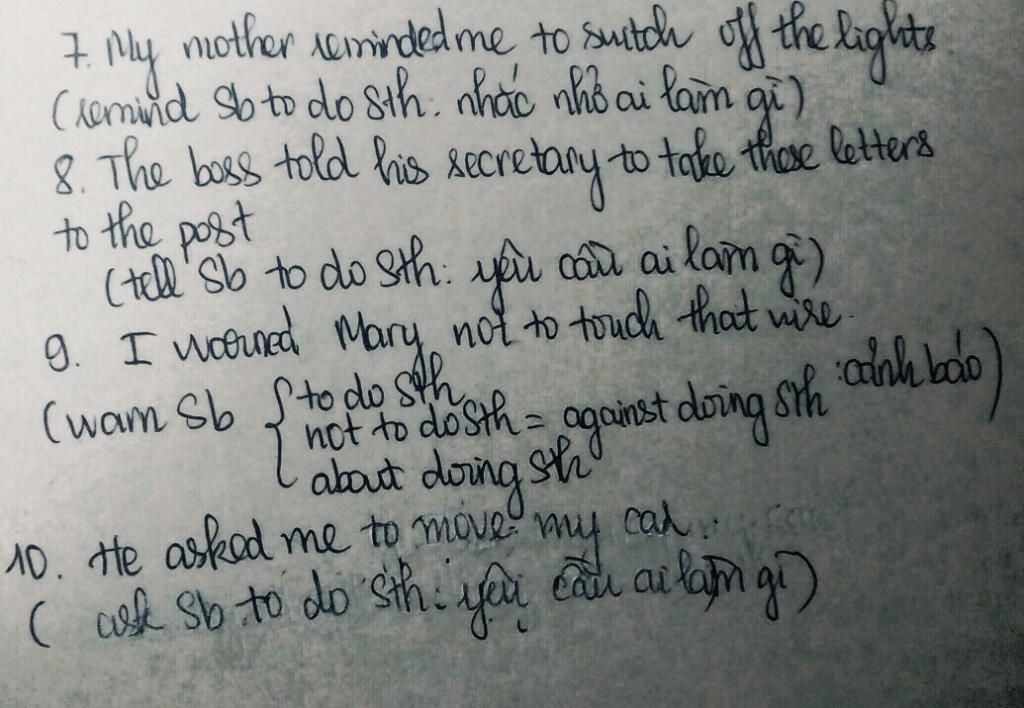 7. My mother reminded me to switch off the lights
(remind sb to do sth: nhắc nhở ai làm gì)
8. The boss told his secretary to take those letters
to the post
(tell sb to do sth: yêu cầu ai làm gì)
9. I warned Mary not to touch that wire.
(warn sb { to do sth
not to do sth = against doing sth : cảnh báo)
about doing sth
10. He asked me to move my car.
( ask sb to do sth: yêu cầu ai làm gì)